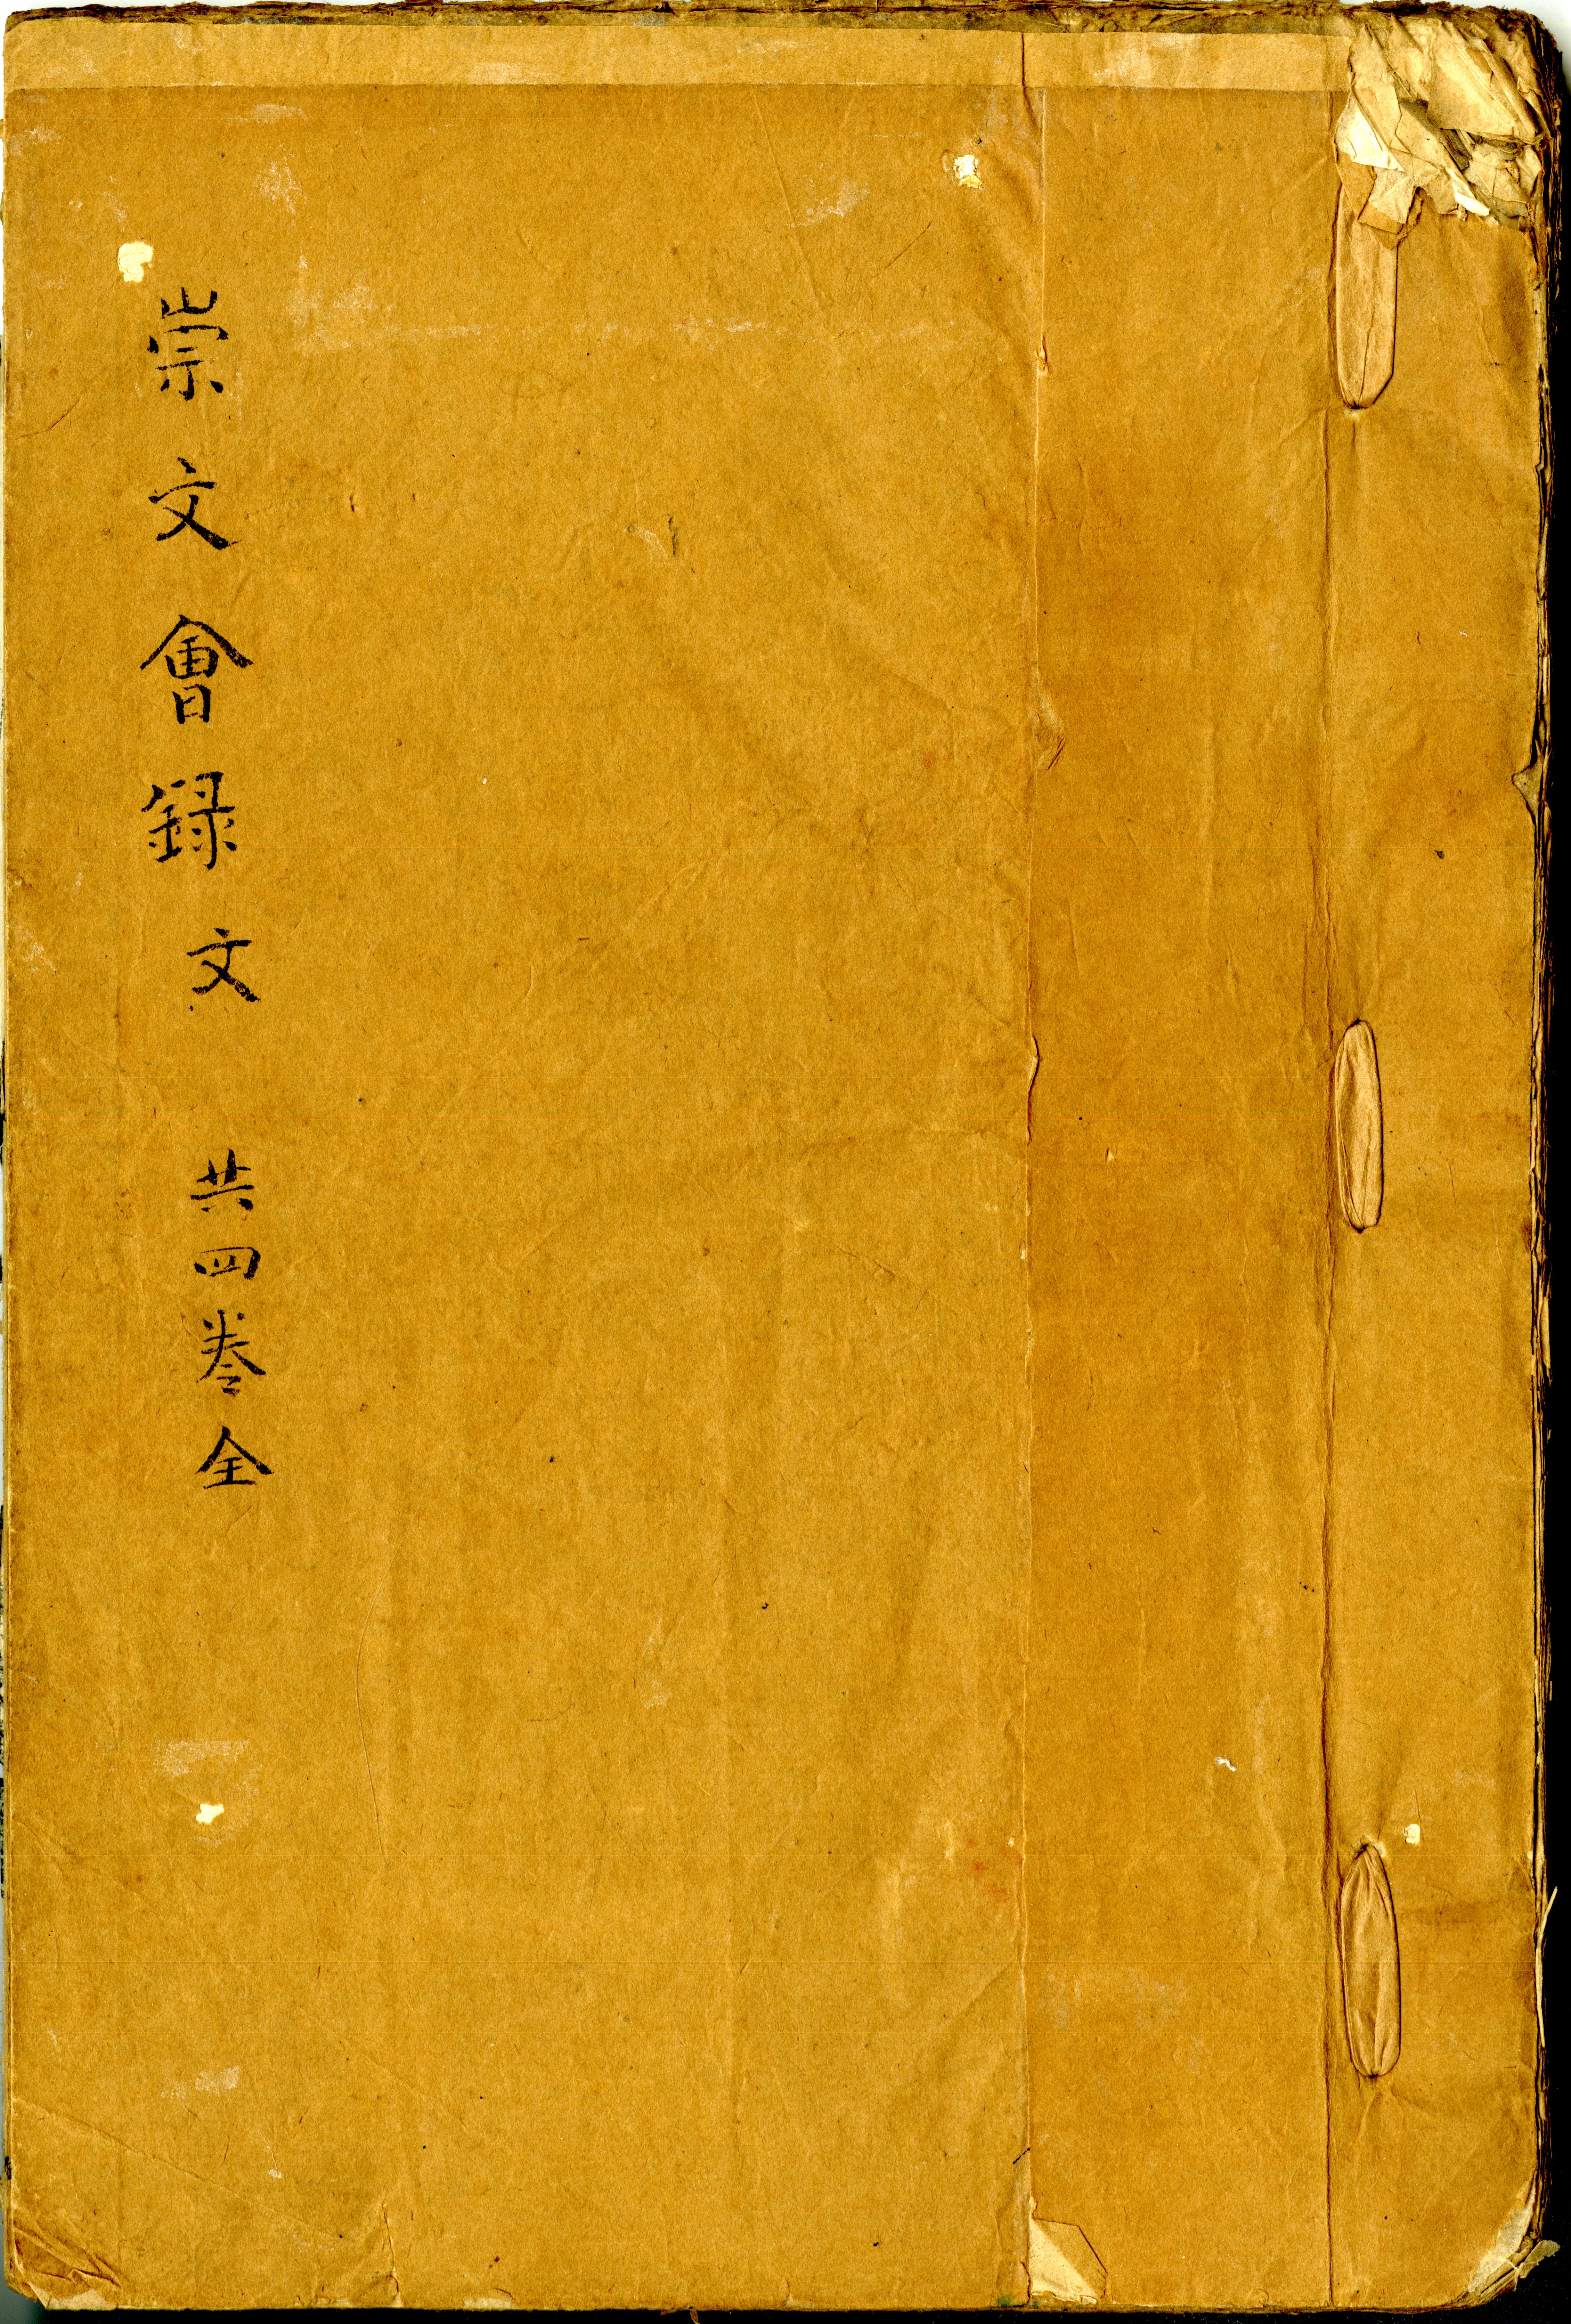 崇文會録文 共四卷全